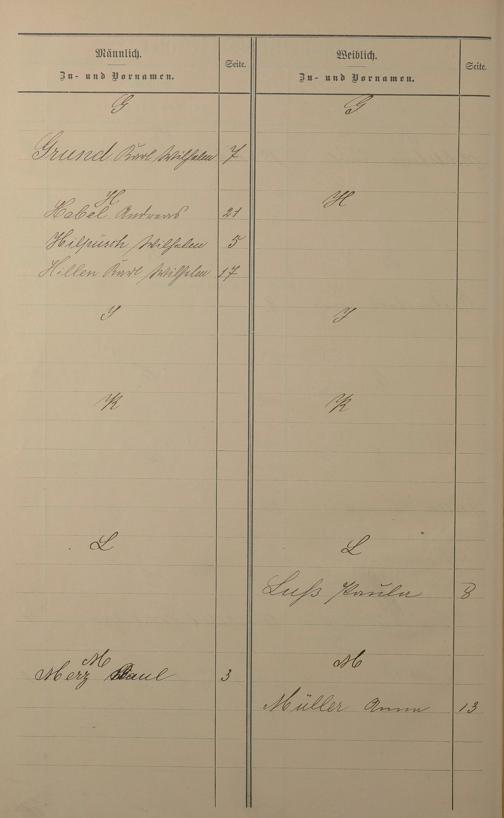 Männlich.
Zu- und Vornamen.
Seite.
G
Grund Karl Wilhelm 7
H
Habel Andreas 21
Hilpüsch Wilhelm 5
Hillen Karl Wilhelm 17
I
K
L
M
Merz Paul 3
Weiblich.
Zu- und Vornamen.
Seite.
G
H
I
K
L
Luß Paula 8
M
Müller Anna 13